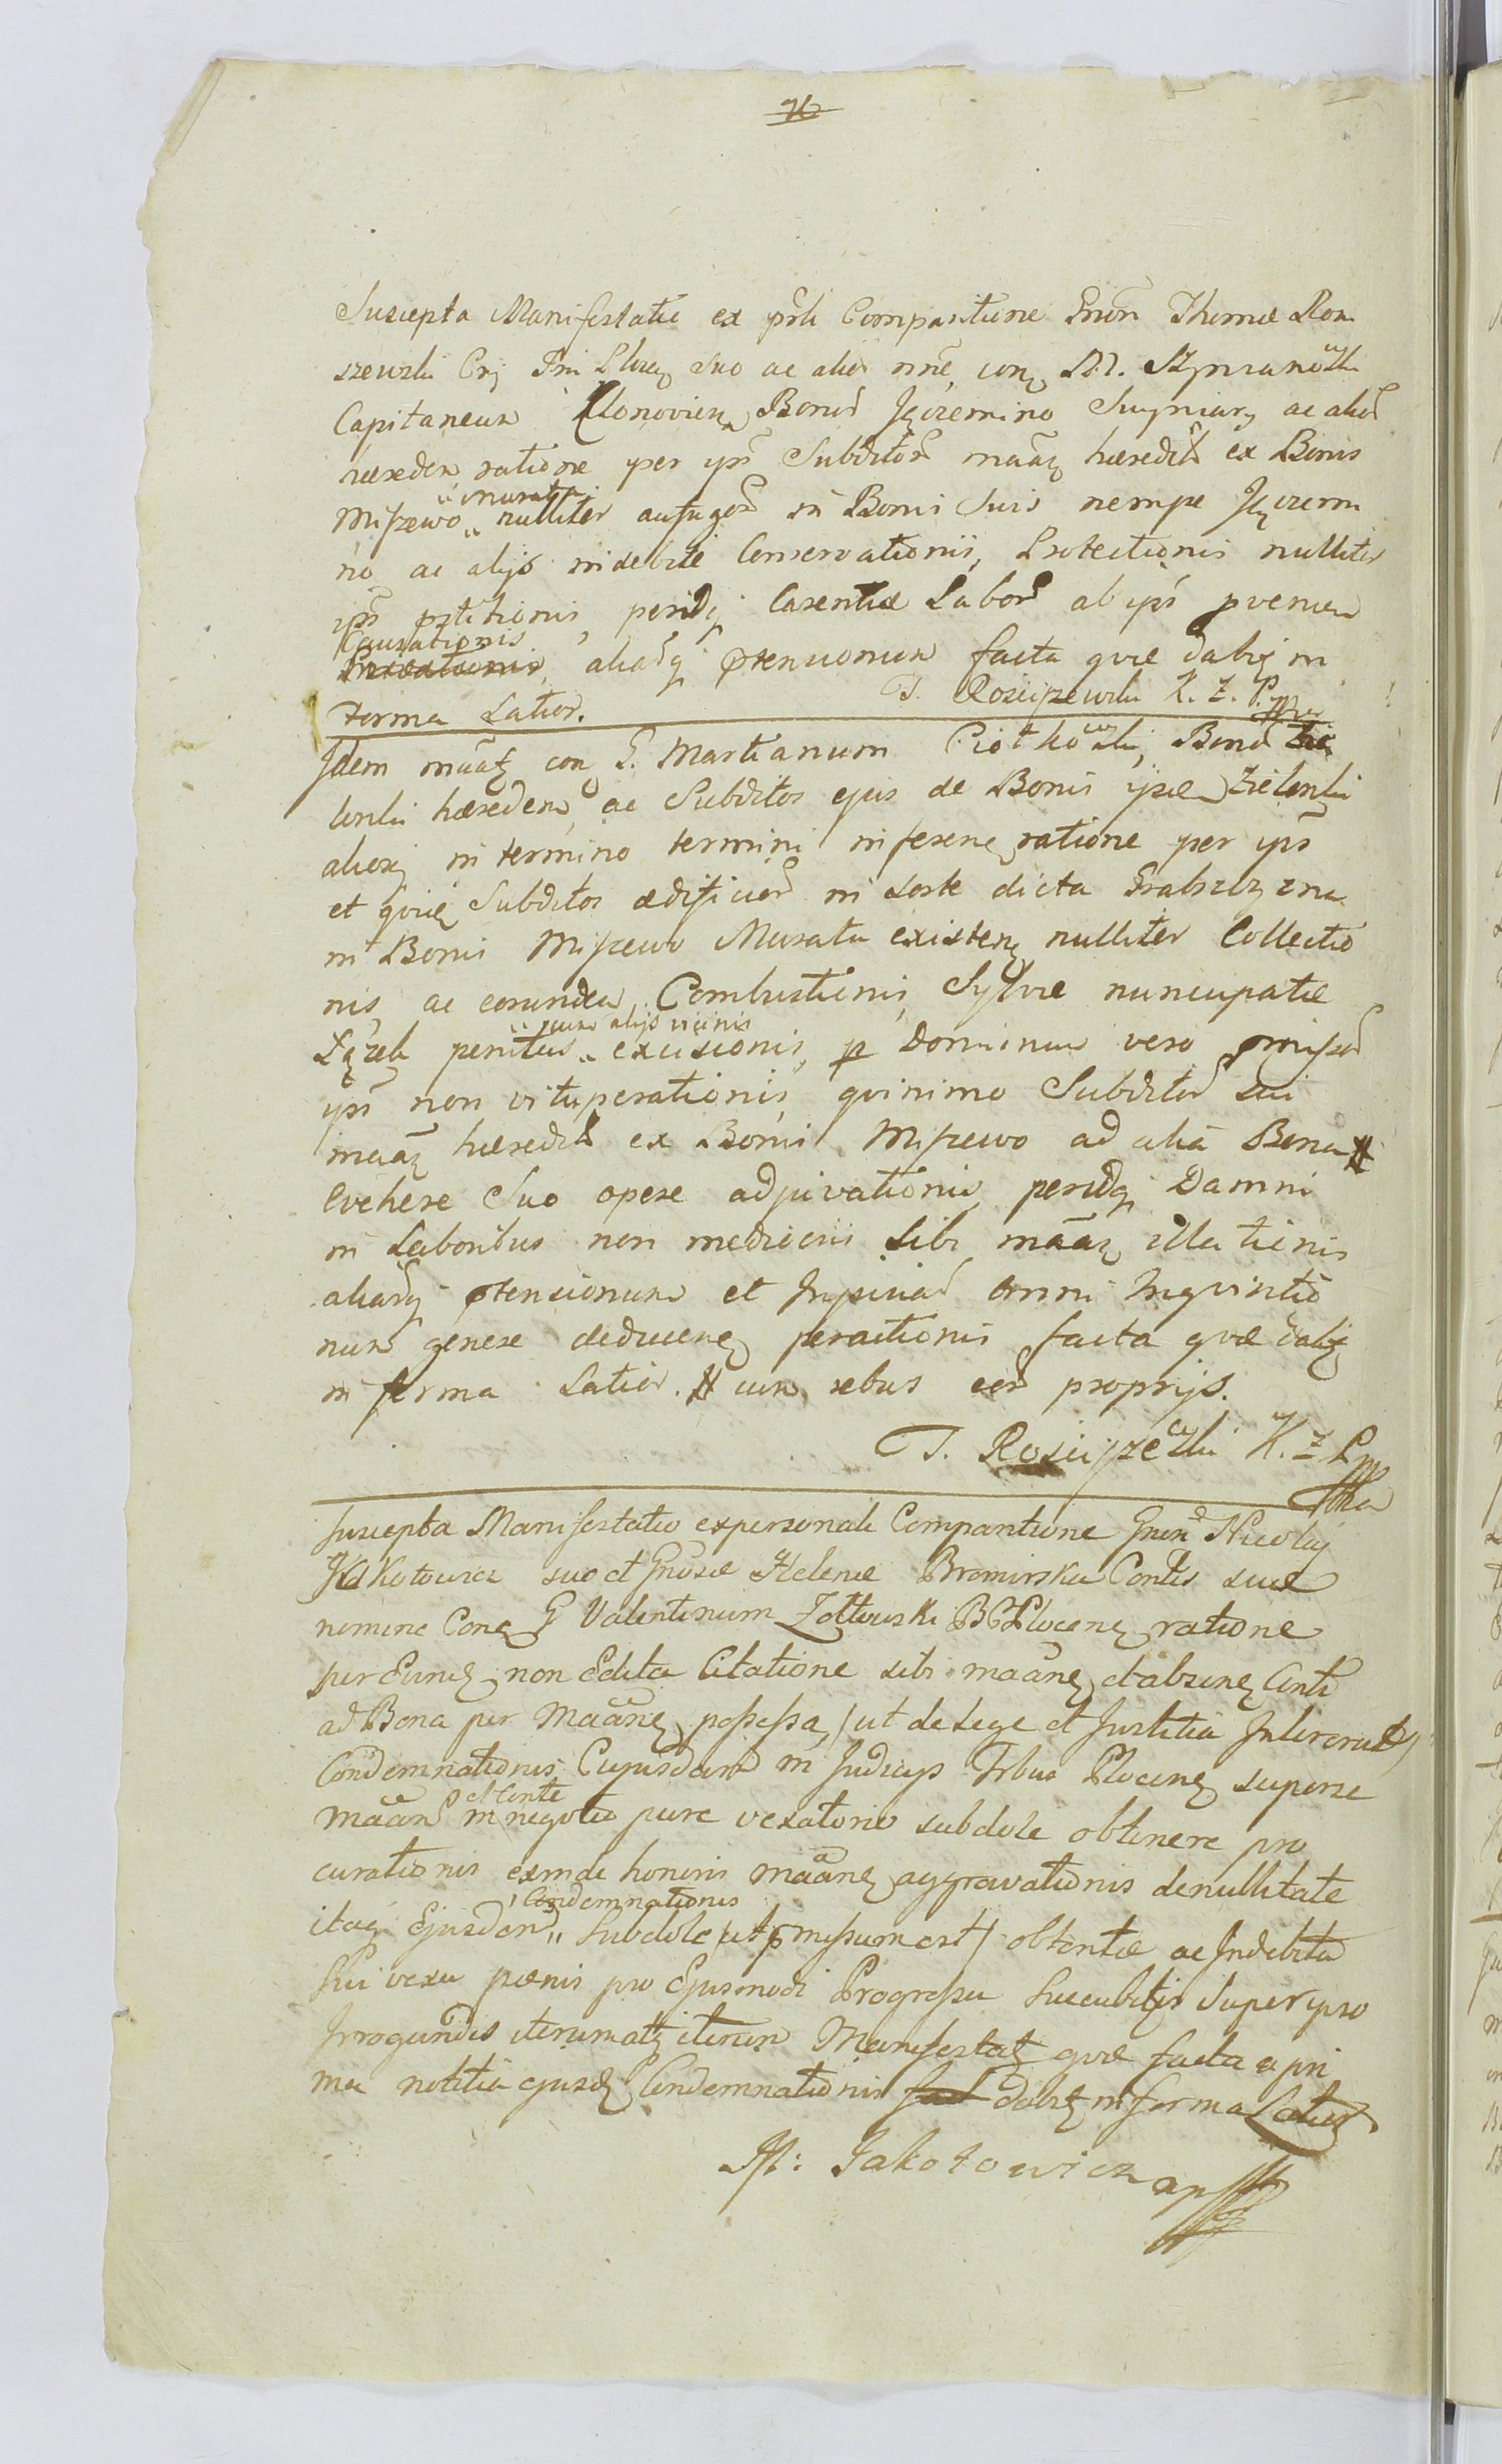 76
Suscepta Manifestatio ex prli Comparitione Gnõr Thomæ Rou
szewski Crj Tri Ploceñ suo ac alior nñe, con M. Szymanowski
Capitaneum Klonovien Bonor Jęczemino Suyniary ac alior
hæredem ratione per ips Subditor mãan hæredit ex Bonis
Miszewo " murata " nulliter aufugor in Bonis Suis nempe Jęczemi
no ac alijs indebite Conservationis, Protectionis nulliter
ips prtitionis, peridq Carentiæ Labor ab ips prvenien
Causationis, aliarq prtensionum facta qvæ dabit in
forma Latior. T. Rosciszewski K. Z. P. mpr
Idem mãat con G. Martianum Piotrkowski, Bonor Zie
lenki hæredem, ac Subditos ejus de Bonis ipse Zielenki
alios in termino termini inferen ratione per ips
et Subditos ædificior in sorte dicta Grabszczyzna
in Bonis Miszewo Murata existen nulliter Collectio
nis, ac eorundem Combustionis, Sylvæ nuncupatæ
Łązek penitus " cum alijs vicinis " excisionis, p Dominum vero prmissor
ips non vituperationis, qvinimo Subditor sui
mãan hæredit ex Bonis Miszewo ad alia Bona #
Evehere Suo opere adjuvationis, peridq Damni
in Laboribus non mediocris sibi mãan illationis
aliarq prtensionum et Injuriar omni Inqvisitio
num genere deducen peractionis facta qvæ dabit
in forma Latior. # cum rebus eor proprijs.
T. Rosciszewski K. Z P mpr
Suscepta Manifestatio ex personali Comparitione Gnor Nicolaj
Jakotowicz suo et Gnosæ Helenæ Bromirska Contis suæ
nomine Con G Valentinum Zołtowski B G Plocen ratione
per Eunden non Edita Citatione sibi mãanẽ et absen Conti
ad Bona per Mãanẽ possessa, /ut de Lege et Justitia Intererat/
Condemnationis Cujusdam in Judicijs Trbus Plocen super se
mãan et Conte in negotio pure vexatorio subdole obtinere pro
curationis exinde honoris mãanẽ aggravationis de nullitate
itaq Ejusdem " Condemnationis " Subdole /ut prmissum est/ obtentæ ac Indebita
sui vexa pænis pro Ejusmodi Progressu Succubitis Super ipso
Irrogandis iterum atq iterum Manifestat qvæ facta a pri
ma notitia ejusd Condemnationis dabit in forma Latior
M: Jakotowicz mp